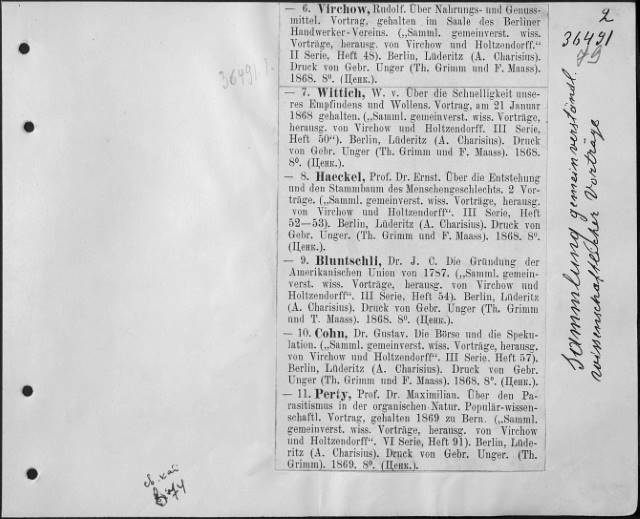 — 6. Virchow, Rudolf. Über Nahrungs- und Genuss-
mittel. Vortrag, gehalten im Saale des Berliner
Handwerker-Vereins. („Samml. gemeinverst. wiss.
Vorträge, herausg. von Virchow und Holtzendorff.“
II Serie, Heft 48). Berlin, Lüderitz (A. Charisius).
Druck von Gebr. Unger (Th. Grimm und F. Maass).
1868. 8⁰. (Ценк.).
— 7. Wittich, W. v. Über die Schnelligkeit unse-
res Empfindens und Wollens. Vortrag, am 21 Januar
1868 gehalten. („Samml. gemeinverst. wiss. Vorträge,
herausg. von Virchow und Holtzendorff. III Serie,
Heft 50“). Berlin, Lüderitz (A. Charisius). Druck
von Gebr. Unger (Th. Grimm und F. Maass). 1868.
8⁰. (Ценк.).
— 8. Haeckel, Prof. Dr. Ernst. Über die Entstehung
und den Stammbaum des Menschengeschlechts. 2 Vor-
träge. („Samml. gemeinverst. wiss. Vorträge, herausg.
von Virchow und Holtzendorff“. III Serie, Heft
52—53). Berlin, Lüderitz (A. Charisius). Druck von
Gebr. Unger (Th. Grimm und F. Maass). 1868. 8⁰.
(Ценк.).
— 9. Bluntschli, Dr. J. C. Die Gründung der
Amerikanischen Union von 1787. („Samml. gemein-
verst. wiss. Vorträge, herausg. von Virchow und
Holtzendorff“. III Serie, Heft 54). Berlin, Lüderitz
(A. Charisius). Druck von Gebr. Unger (Th. Grimm
und T. Maass). 1868. 8⁰. (Ценк.).
— 10. Cohn, Dr. Gustav. Die Börse und die Speku-
lation. („Samml. gemeinverst. wiss. Vorträge, herausg.
von Virchow und Holtzendorff“. III Serie. Heft 57).
Berlin, Lüderitz (A. Charisius). Druck von Gebr.
Unger (Th. Grimm und F. Maass). 1868. 8⁰. (Ценк.).
— 11. Perty, Prof. Dr. Maximilian. Über den Pa-
rasitismus in der organischen Natur. Populär-wissen-
schaftl. Vortrag, gehalten 1869 zu Bern. („Samml.
gemeinverst. wiss. Vorträge, herausg. von Virchow
und Holtzendorff“. VI Serie, Heft 91). Berlin, Lüde-
ritz (A. Charisius). Druck von Gebr. Unger. (Th.
Grimm). 1869. 8⁰. (Ценк.).
2
36491
Sammlung gemeinverständl.
wissenschaftlicher Vorträge
36491.
74